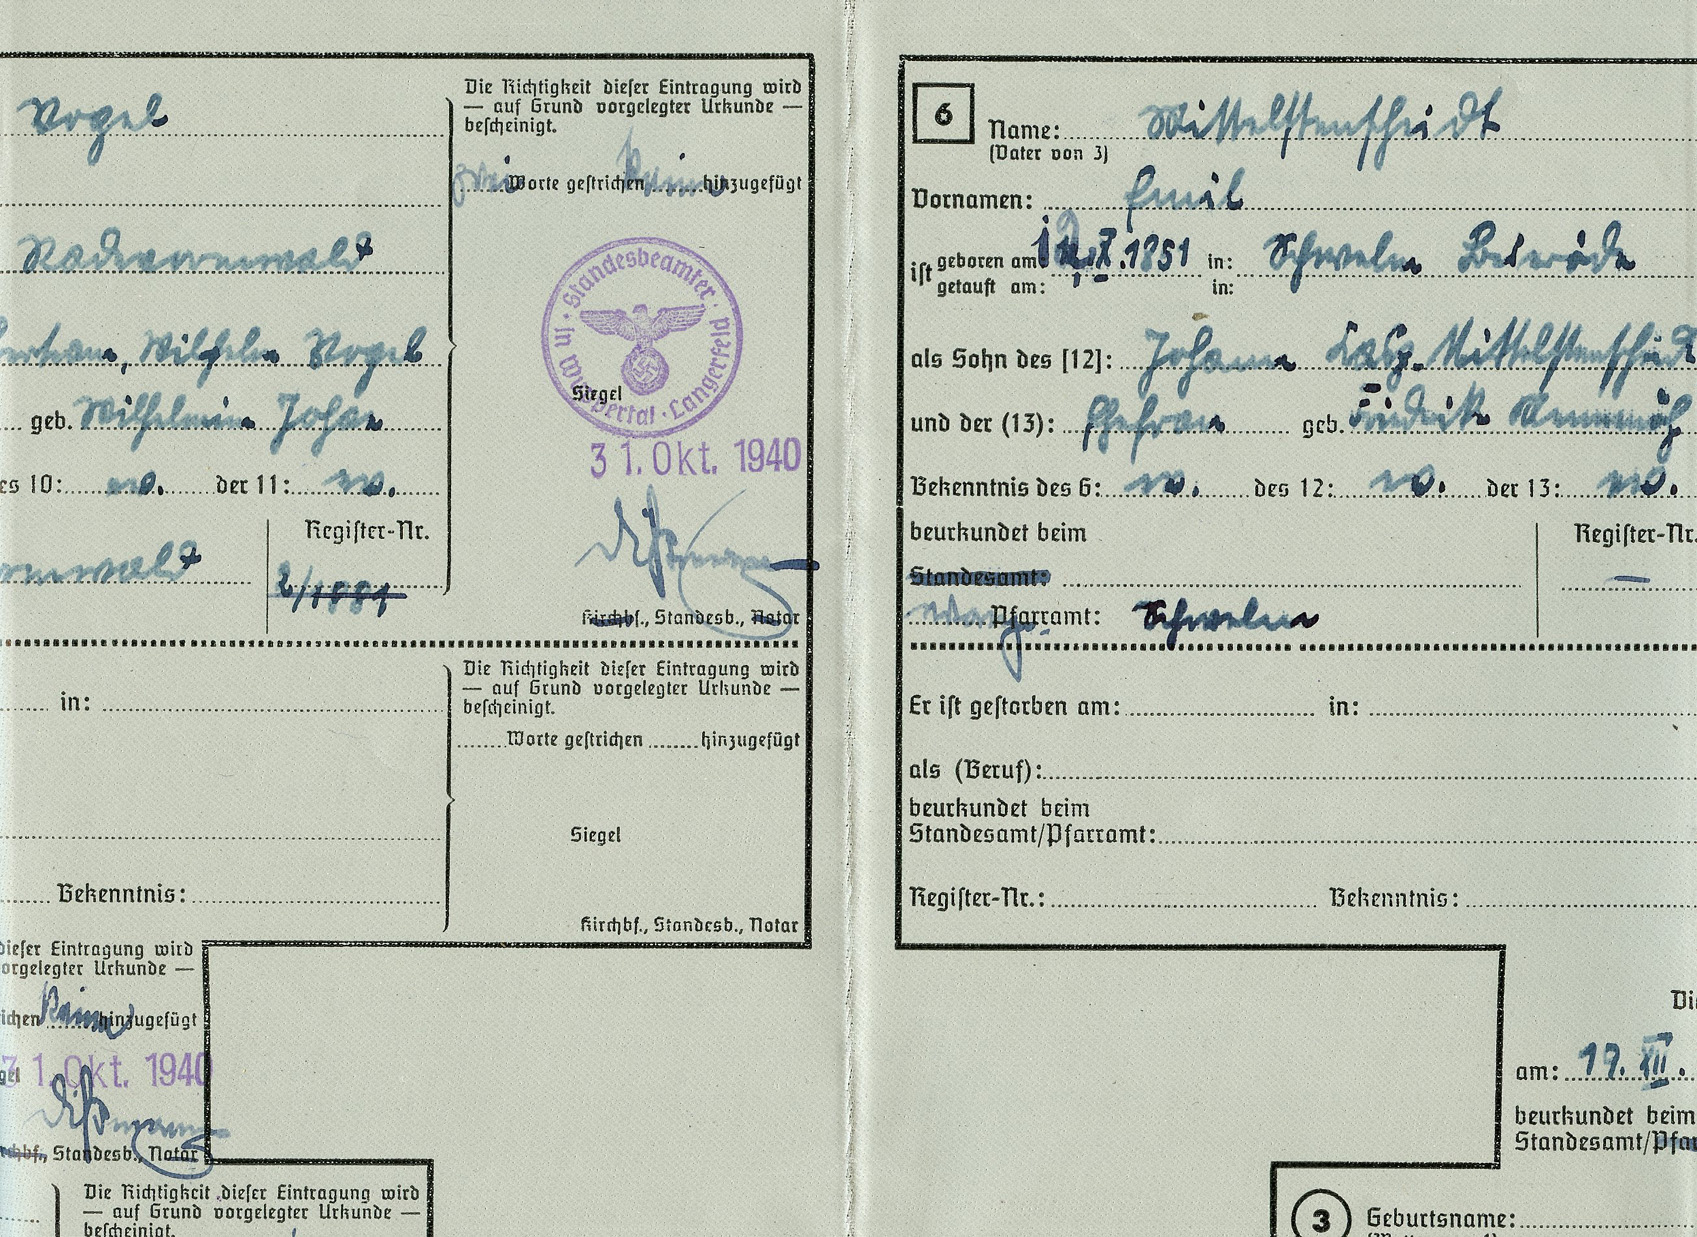 Vogel
Die Richtigkeit dieser Eintragung wird
— auf Grund vorgelegter Urkunde —
bescheinigt.
zwei Worte gestrichen keine hinzugefügt
Radevormwald
Wilhelm Vogel
geb. Johan
es 10: ev. der 11: ev.
Register-Nr.
2/1881
Standesbeamter
in Wuppertal-Langerfeld
Siegel
31. Okt. 1940
Kirchbf., Standesb., Notar
in:
Bekenntnis:
Die Richtigkeit dieser Eintragung wird
— auf Grund vorgelegter Urkunde —
bescheinigt.
Worte gestrichen hinzugefügt
Siegel
Kirchbf., Standesb., Notar
dieser Eintragung wird
orgelegter Urkunde —
ichen keine hinzugefügt
gel
31. Okt. 1940
chbf., Standesb., Notar
Die Richtigkeit dieser Eintragung wird
— auf Grund vorgelegter Urkunde —
bescheinigt.
6
Name: Mittelstenscheidt
(Vater von 3)
Vornamen: Emil
ist geboren am .1851 in: Schwelm
getauft am: in:
als Sohn des [12]: Johann Casp. Mittelstenscheidt
und der (13): Ehefrau geb.
Bekenntnis des 6: ev. des 12: ev. der 13: ev.
beurkundet beim
Register-Nr.
Standesamt: —
Pfarramt: Schwelm
Er ist gestorben am: in:
als (Beruf):
beurkundet beim
Standesamt/Pfarramt:
Register-Nr.: Bekenntnis:
Di
am: 19. XII.
beurkundet beim
Standesamt/Pfa
3 Geburtsname: